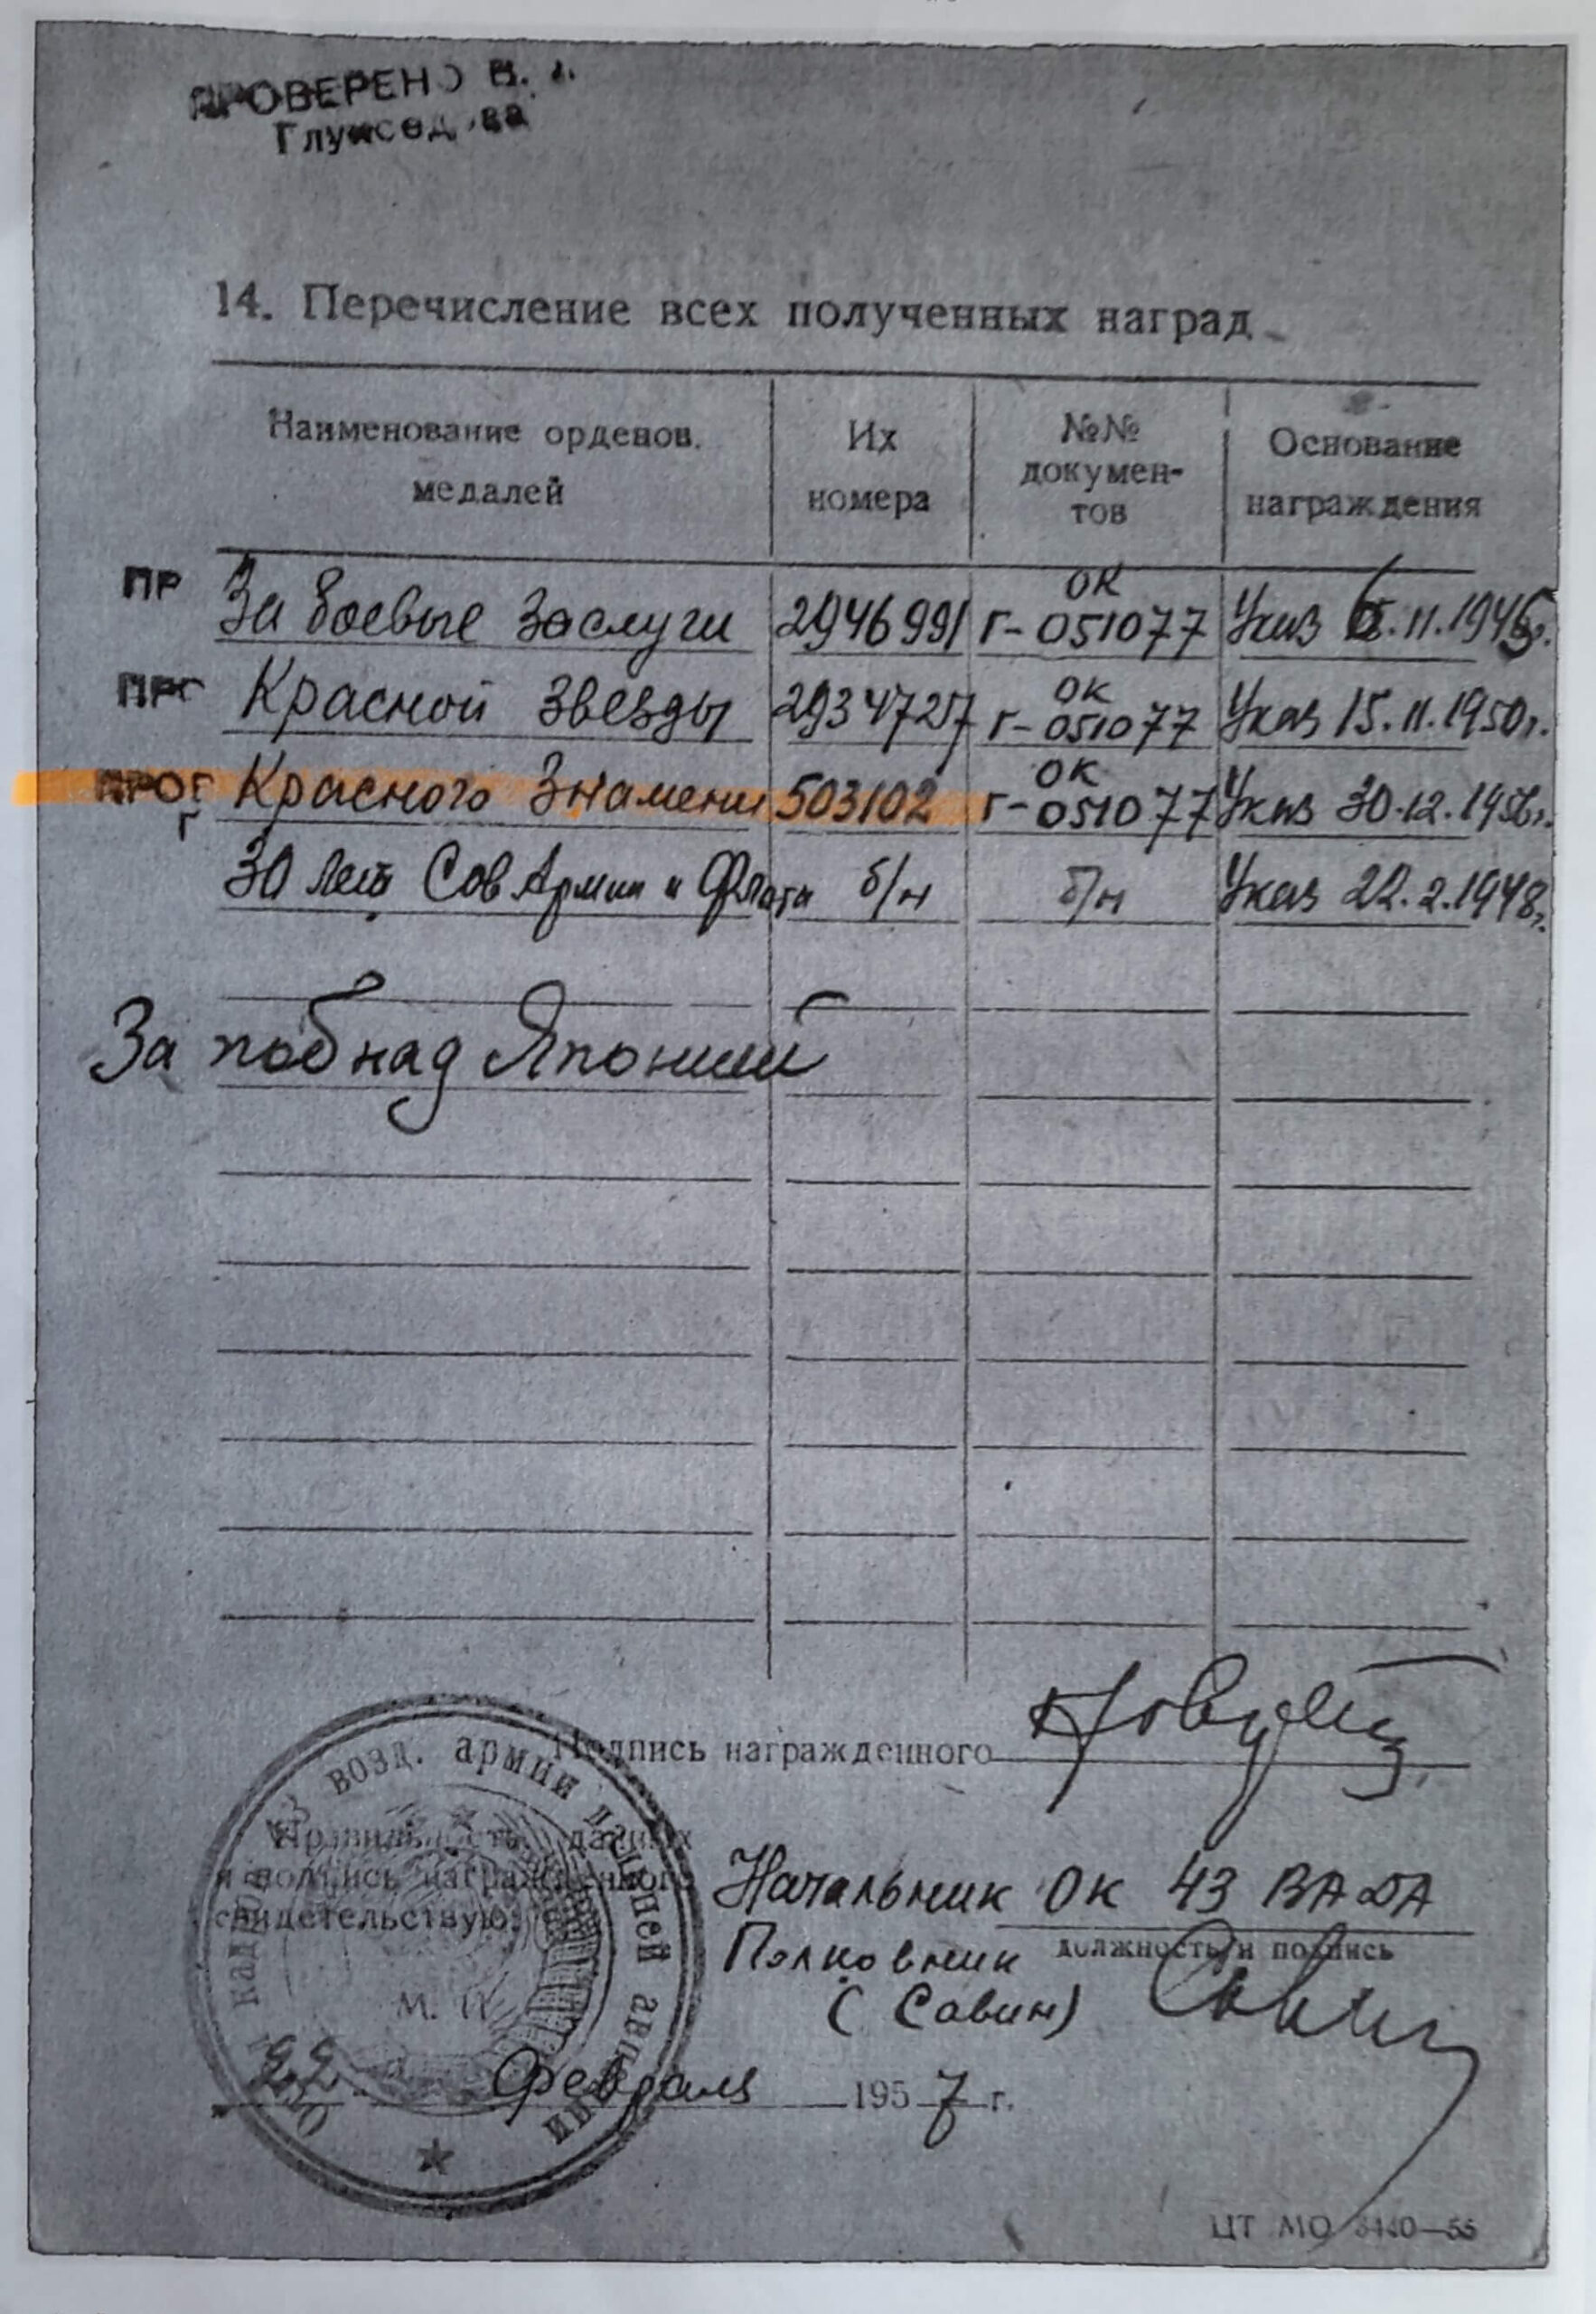 ПРОВЕРЕНО В.
14. Перечисление всех полученных наград
Наименование орденов, медалей
Их номера
№№ документов
Основание награждения
ПР За боевые заслуги 2946991 ОК Г-051077 Указ 6.11.1945г.
ПРГ Красной Звезды 2934727 ОК Г-051077 Указ 15.11.1950г.
ПРОГ Г Красного Знамени 503102 ОК Г-051077 Указ 30.12.1956г.
30 лет Сов Армии и Флота б/н б/н Указ 22.2.1948г.
За поб над Японией
Подпись награжденного
Правильность данных
и подпись награжденного
свидетельствую:
Начальник ОК 43 ВА ДА
должность и подпись
Полковник
(Савин)
М. П.
22 Февраля 1957 г.
Отдел кадров 43 возд. армии дальней авиации
ЦТ МО